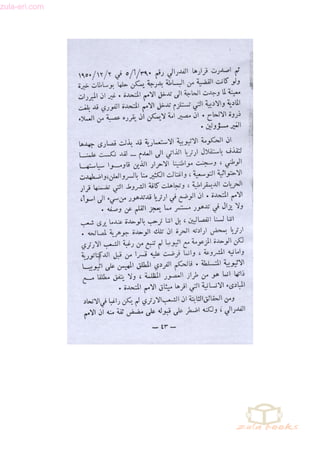 zula-eri.com
ثم اصدرت قرارها الفدرالي رقم ٣٩٠/أ/٥ في ١٩٥٠/١٢/٢
ولو كانت القضية من البساطة بدرجة يمكن حلها بوساطات خيرة
معينة لما وجدت الحاجة الى تدخل الامم المتحدة ٠ غير ان المبررات
المادية والادبية التي تستلزم تدخل الامم المتحدة الفوري قد بلغت
ذروة الالحاح ٠ ان مصير امة لايمكن ان يقرره عصبة من العملاء
الغير مسؤولين ٠
ان الحكومة الاثيوبية الاستعمارية قد بذلت قصارى جهدها
لتقذف باستقلال ارتريا الذاتي الى العدم ــ لقد نكست علمنا
الوطني ، وسجنت مواطنينا الاحرار الذين قاوموا سياستها
الاحتوائية التوسعية ، واغتالت الكثير منا بالسر والعلن واضطهدت
الحريات الديمقراطية ، وتجاهلت كافة الشروط التي تضمنها قرار
الامم المتحدة ٠ ان الوضع في ارتريا قد تدهور من سيء الى اسوأ ،
ولا يزال في تدهور مستمر مما يعجز القلم عن وصفه ٠
اننا لسنا انفصاليين ، بل اننا نرحب بالوحدة عندما يرى شعب
ارتريا بمحض ارادته الحرة ان تلك الوحدة جوهرية لمصالحه ٠
لكن الوحدة المزعومة مع اثيوبيا لم تنبع من رغبة الشعب الارتري
وامانيه المشروعة ، وانما فرضت عليه قسرا من قبل الدكتاتورية
الاثيوبية المتسلطة ٠ فالحكم الفردي المطلق المهيمن على اثيوبيا
ذاتها انما هو من طراز العصور المظلمة ، ولا يتفق مطلقا مع
المبادىء الانسانية التي اقرها ميثاق الامم المتحدة ٠
ومن الحقائق الثابتة ان الشعب الارتري لم يكن راغبا في الاتحاد
الفدرالي ، ولكنه اضطر على قبوله على مضض ثقة منه ان الامم
— ٤٣ —
zula books